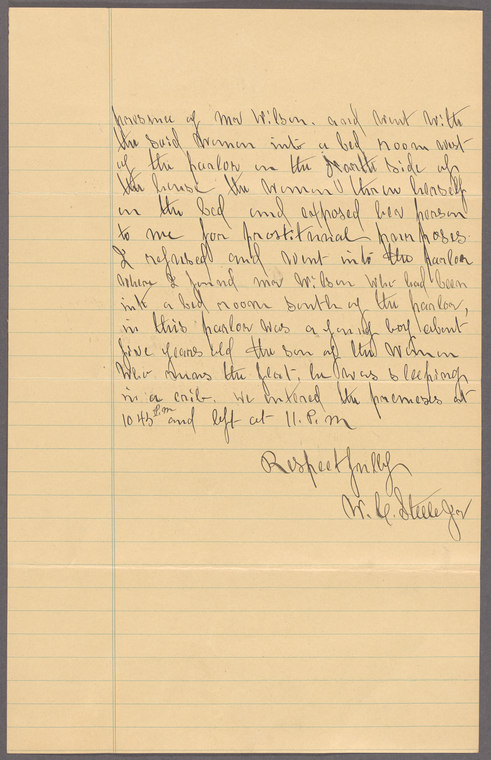 presence of Mr Wilson. and went with
the said woman into a bed room west
of the parlor on the North side of
the house the woman threw herself
on the bed and exposed her person
to me for prostitutial purposes.
I refused and went into the parlor
where I found Mr Wilson who had been
into a bed room south of the parlor,
in this parlor was a young boy about
five years old the son of the woman
who runs the flat, he was sleeping
in a crib. we entered the premises at
10 45 P.m and left at 11. P.m
Respectfully
W. C. Steele Jor